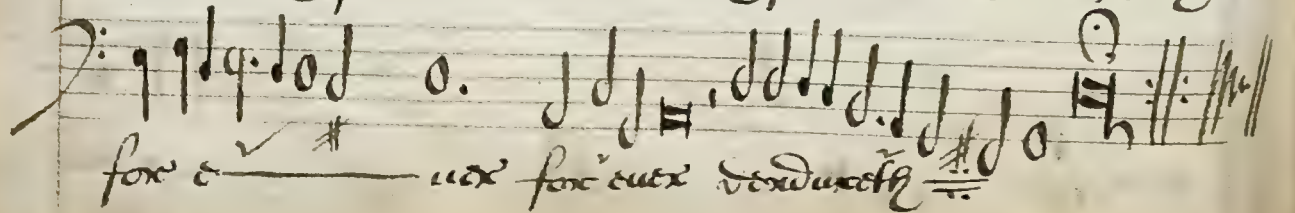 for e uer for euer endureth